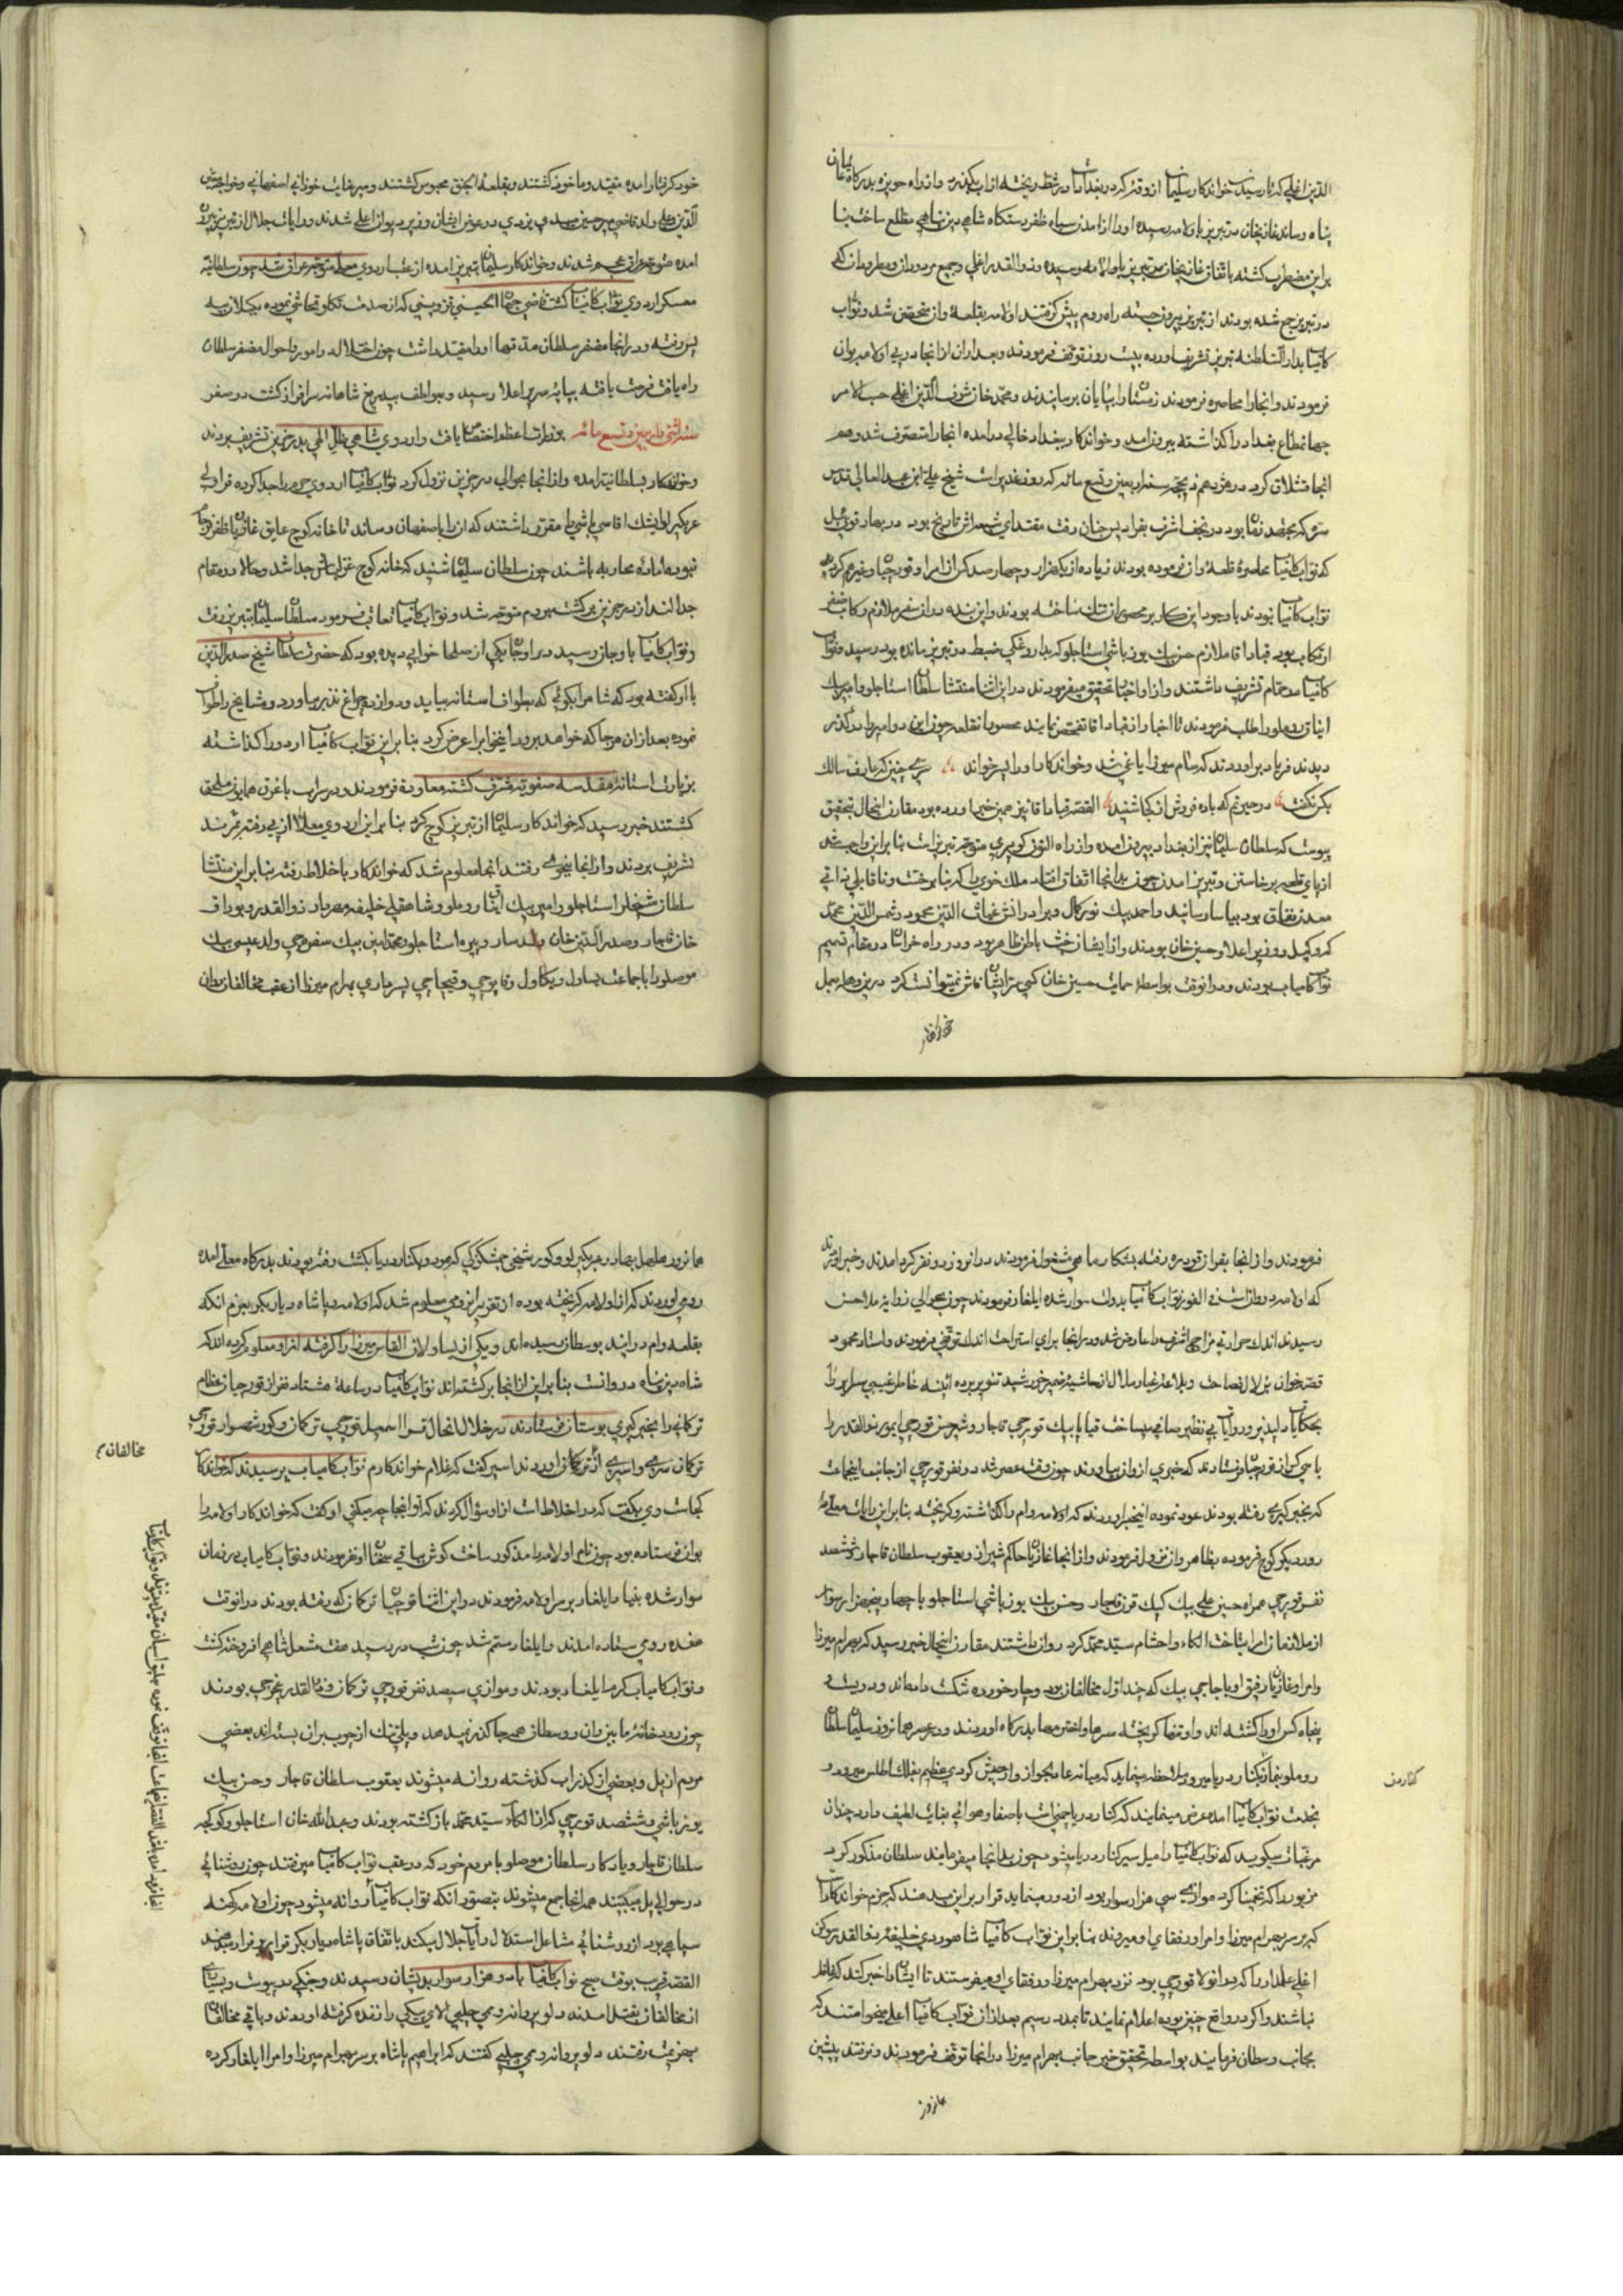 الدین اغلی که تا رسیدن خواندکار سلیمان از وقر که در بغداد از اب بکذرد و از راه حویزه بدرکاه
پناه رساند غازیخان در تبریز باولامه رسیده او را از امدن سپاه ظفر دستکاه شاهی دین پناهی مطلع ساخت بنا
براین مضطرب کشته باتفاق غازیخان در تبریز باولامه رسیده و ذوالقدر اغلی و جمع مردودان و مطرودان که
در تبریز جمع شده بودند از تبریز بیرون جسته راه روم پیش کرفتند اولامه بقلعه وان متحصن شد و نواب
کامیاب بدار السلطنه تبریز تشریف اورده بیست روز توقف فرمودند و بعد ازان از انجا در پی اولامه بوان
فرمودند و انجا را محاصره فرمودند زمستان را بپایان رسانیدند و محمد خان شرف الدین اغلی حسب الامر
جهانمطاع بغداد را کذاشته بیرون امد و خواندکار ببغداد خالی درامده انجا را متصرف شد و هم
انجا قشلاق کرد در هژدهم ذیحجه سنه اربعین و تسع مائه که روز غدیر است شیخ علی ابن عبد العالی قدس
سره که مجتهد زمان بود در نجف اشرف بفرادیس جنان رفت مقتدای شیعه اش تاریخ بود در بهار قوی ئیل
که نواب کامیاب محاصره قلعه وان فرموده بودند زیاده از یکهزار و چهار صد کس از امرا و قورچیان و غیرهم کرد
نواب کامیاب نبودند با وجود این کار بر محصوران تنک ساخته بودند و این بنده در ان سفر ملازم رکاب ظفر
انتساب بود قباد اقا ملازم حسن بیک یوز باشی استاجلو که بداروغکی ضبط در تبریز مانده بود رسید و نواب
کامیاب در حمام تشریف داشتند و از او اخبار تحقیق میفرمودند در این اثنا منتشا سلطان استاجلو و امیر بیک
روملو را طلب فرمودند تا اخبار از قباد اقا تفحص نمایند محصوران قلعه چون این دو امیر را در کذر
دیدند فریاد براوردند که سام میرزا یاغی شد و خواندکار او را پسر خواند سری چنین که عارف سالک
بکس نکفت در حیرتم که باده فروش از کجا شنید القصه قباد اقا نیز همین خبر اورده بود مقارن اینحال بتحقیق
پیوست که سلطان سلیمان نیز از بغداد بیرون امده و از راه التون کوپری متوجه تبریز است بنا براین واجب شد
از پای قلعه برخاستن و تبریز امدن چون بدانجا اتفاق افتاد ملک خوی را که
معدن نفاق بود بیاسا رسانید و احمد بیک نورکمال و برادرانش غیاث الدین محمود و شمس الدین محمد
که وکیل و وزیر اعلا و حسین خان بودند و از ایشان خبث باطن ظاهر بود و در راه خراسان در مقام
نواب کامیاب بودند و در انوقت بواسطه حمایت حسین خان کسی متعرض ایشان نمیتوانست کرد درین
خود کرفتار امده مقید و ماخوذ کشتند و بقلعه النجق محبوس کشتند و میر عنایت خوزانی اصفهانی و خواجه معین
الدین علی ولد قاضی میر حسین میبدی یزدی در عوض ایشان وزیر دیوان اعلی شدند و رایات جلال از تبریز بیرون
امده متوجه عراق عجم شدند و خواندکار سلیمان بتبریز امده از عقب اردوی معلی متوجه عراق شد چون سلطانیه
معسکر اردوی نواب کامیاب کشت قاضی جهان الحسینی قزوینی که از صدمت تکلو تحاشی نموده بکیلان بیه
پس رفته و در انجا مظفر سلطان مدتها او را مقید داشت چون اختلال در امور و احوال مظفر سلطان
راه یافت فرصت یافته بپایه سریر اعلا رسید و بعواطف بیدریغ شاهانه سرافراز کشت در صفر
سنه اثنی و اربعین و تسع مائه بوزارت اعظم اختصاص یافت و اردوی شاهی ظل الهی بدرجزین تشریف بردند
و خواندکار بسلطانیه امده و از انجا بحوالی درجزین نزول کرد نواب کامیاب اردوی حرم را جدا کرده قراولی
عربکیر لو ایشک اقاسی باشی را مقرر داشتند که ان را باصفهان رساند تا خانه کوچ عایق غازیان ظفر
نبوده اماده محاربه باشند چون سلطان سلیمان شنید که خانه کوچ قزلباش جدا شد و حالا در مقام
جدالند از درجزین برکشته بروم متوجه شد و نواب کامیاب تعاقب فرمود سلطان سلیمان بتبریز رفت
و نواب کامیاب باوجان رسید در اوجان یکی از صلحا خوابی دیده بود که حضرت سلطان شیخ صدر الدین
با او کفته بود که شاه را بکوئی که بطواف استانه بیاید و دوازده چراغ نذر بیاورد و مشایخ را طواف
نموده بعد ازان هر جا که خواهد برود اینخواب را عرض کرد بنا براین نواب کامیاب اردو را کذاشته
بزیارت استانه مقدسه صفویه مشرف کشته معاودت فرمودند و در سراب باغرق همایون ملحق
کشتند خبر رسید که خواندکار سلیمان از تبریز کوچ کرد بنا براین اردوی معلا از پی رفته بمرند
تشریف بردند و از انجا بخوی رفتند انجا معلوم شد که خواندکار باخلاط رفته بنا براین منتشا
سلطان شیخلر استاجلو و امیر بیک روملو و شاهقلی خلیفه مهردار ذوالقدر و بوداق
خان قاجار و صدر الدین خان ولد ساروپیره استاجلو و محمد امین بیک سفره چی ولد عیسی بیک
موصلو را با جماعت یساول و بکاول و قاپوچی و قیچاجی بسرداری بهرام میرزا از عقب مخالفان روان
فرمودند و از انجا بقراقوی دره رفته بشکار ماهی مشغول فرمودند در انروز دو نفر کرد امدند و خبر اوردند
که اولامه در وان است فی الفور نواب کامیاب بدولت سوار شده ایلغار فرمودند چون بحوالی زوایه ملا حسن
رسیدند اندک حرارتی مزاج اشرف را عارض شد و در انجا برای استراحت اندک توقف فرمودند و استاد محمود
قصه خوان بزلال فصاحت و بلاغت غبار ملال از حاشیه ضمیر خورشید تنویر برده ائینه خاطر غیبی سرایر را
بحکایات دلپذیر و روایات بی نظیر صافی میساخت قیا پا بیک قورچی قاجار و شیر حسن قورچی ایمور ذوالقدر را
با سی کس از قورچیان فرستادند که خبری از وان بیاورند چون وقت عصر شد دو نفر قورچی از جانب اینجماعت
که بخبر کیری رفته بودند عود نموده اینخبر اوردند که اولامه وام را کذاشته و کریخته بنا براین رایات معلا
روز دیکر کوچ فرموده بظاهر وان نزول فرمودند و از انجا غازیخان حاکم شیراز و یعقوب سلطان قاجار و ششصد
نفر قورچی همراه حسین علی بیک کپک قرن قاجار و حسن بیک یوز باشی استاجلو با چهار پنجهزار سوار
از ملازمان امرا بتاخت الکاء و احشام سید محمد کرد روان داشتند مقارن اینحال خبر رسید که بهرام میرزا
و امرا و غازیان رفیق او باجاجی بیک که چنداول مخالفان بود دچار خورده شکست داده اند و دویست و
پنجاه کس او را کشته اند و او تنها کریخته سرها و اخترمها بدرکاه اوردند و در عصر همانروز سلیمان سلطان
روملو بتماشا بکنار دریا میرود ملاحظه مینماید که میانه عادلجواز و ارجیش کردی عظیم بفلک اطلس میرود
بخدمت نواب کامیاب امده عرض مینماید که کنار دریا چمنی است باصفا و هوائی بغایت لطیف دارد چندان
مرغبات میکوید که نواب کامیاب را میل سیر کنار دریا میشود چون بدانجا میفرمایند سلطان مذکور کرد
مزبور را که تخمینا کرد موازی سی هزار سوار بود از دور مینماید قرار براین میدهند که جزم خواندکار است
که بر سر بهرام میرزا و امرا و رفقای او میروند بنا براین نواب کامیاب شاهوردی خلیفه ذوالقدر سوکن
اغلی علمدار را که در انولا قورچی بود نزد بهرام میرزا و رفقای او میفرستند تا ایشان را خبر کند که غافل
نباشند و اکر در واقع چنین بوده اعلام نمایند تا بمدد رسیم بعد ازان نواب کامیاب اعلی میخواستند که
بجانب وسطان فرمایند بواسطه تحقیق خبر جانب بهرام میرزا در انجا توقف فرمودند و نرفتند پیشین
کنار من
همانروز
همانروز بهادر عربکیرلو و کور شیخی چمشکزکی که بکنار دریا بکشت رفته بودند بدرکاه معلی امده
رومی اوردند که از اولامه کریخته بوده از تقریر ان رومی معلوم شد که اولامه و پاشاه دیاربکر بعزم انکه
بقلعه وام درایند بوسطان رسیده اند و یکی از یساولان القاس میرزا را کرفته از او معلوم کرده اند که
شاه دین پناه در وانست بنا براین از انجا برکشته اند نواب کامیاب در ساعة هشتاد نفر از قورچیان عظام
ترکمانی را بخبر کیری بوستان فرستادند در خلال اینحال قرا اسمعیل قورچی ترکمان و کور شهسوار قورچی
ترکمان سری و اسیری از ترکان اوردند اسیر کفت که غلام خواندکارم نواب کامیاب پرسیدند که خواندکار
کجاست وی بکفت که در اخلاط است از او سؤال کردند که تو انجا چه میکنی او کفت که خواندکار اولامه را
بوان فرستاده بود چون نام اولامه را مذکور ساخت کوش بباقی سخنان او نفرمودند و نواب کامیاب در زمان
سوار شده بنیاد ایلغار بر سر اولامه فرمودند در این اثنا قورچیان ترکمان که رفته بودند در انوقت
هفده رومی ستاده امدند و ایلغار رستم شد چون شب در رسید هفت مشعل شاهی افروخته کشت
و نواب کامیاب کرم ایلغار بودند و موازی سیصد نفر قورچی ترکمان و ذوالقدر غرچی بودند
چون رودخانه مابین وان و وسطان همه جا کذر نمیدهد و پلی تنک از چوب بران بسته اند بعضی
مردم از پل و بعضی از کذر اب کذشته روانه میشوند یعقوب سلطان قاجار و حسن بیک
یوز باشی و ششصد قورچی که از الکاء سید محمد بازکشته بودند و عبد الله خان استاجلو و کوکجه
سلطان قاجار و یادکار سلطان موصلو با مردم خود که در عقب نواب کامیاب میرفتند چون روشنائی
در حوالی پل میبینند همه انجا جمع میشوند بتصور انکه نواب کامیاب از انجا روانه میشود چون اولامه کهنه
سپاهی بود از روشنائی مشاعل استدلال رایات جلال میکند باتفاق پاشاه دیاربکر قرار بر فرار میدهند
القصه قریب بوقت صبح نواب کامیاب با دو هزار سوار بدیشان رسیدند و جنکی در پیوست و بسیاری
از مخالفان بقتل امدند دلو پروانه رومی چلبی الای بیکی را زنده کرفته اوردند و باقی مخالفان
بهزیمت رفتند دلو پروانه رومی چلبی کفتند که ابراهیم پاشاه بر سر بهرام میرزا و امرا ایلغار کرده
مخالفان